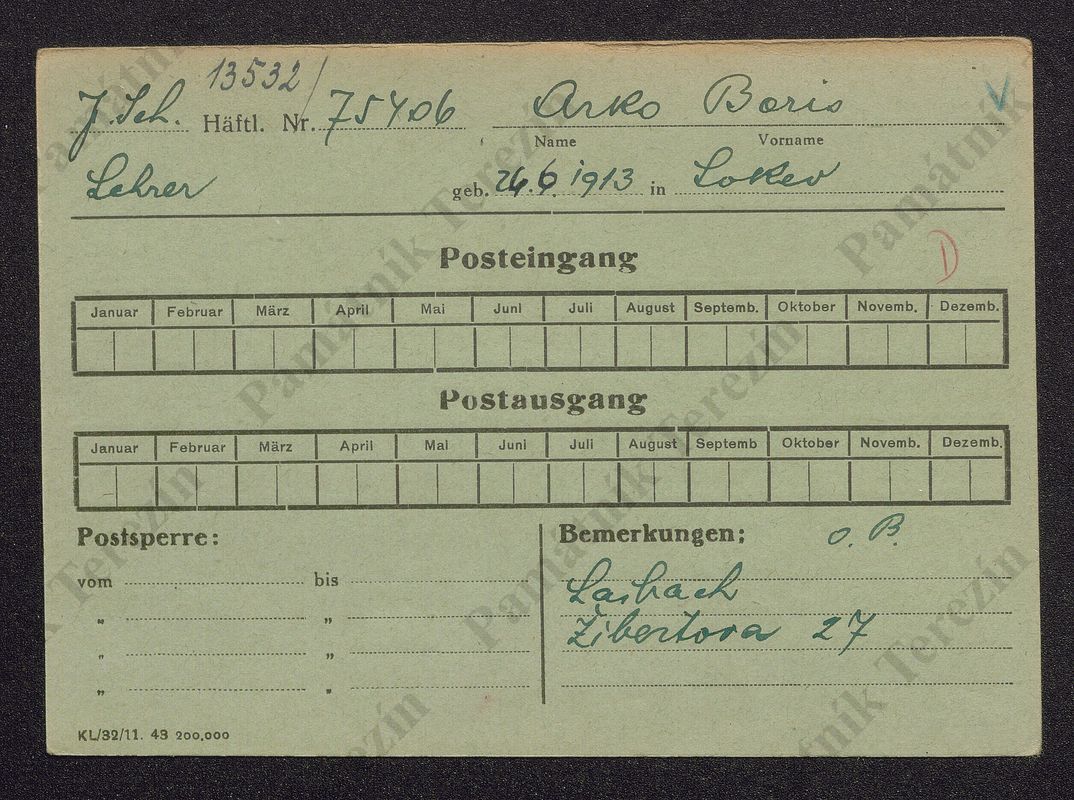 13532/
J. Sch. Häftl. Nr. 75406 Arko Boris
Name Vorname
Lehrer geb. 26.6.1913 in Lokev
Posteingang
D
Januar Februar März April Mai Juni Juli August Septemb. Oktober Novemb. Dezemb.
Postausgang
Januar Februar März April Mai Juni Juli August Septemb Oktober Novemb. Dezemb.
Postsperre: Bemerkungen: o. B.
vom bis
Laibach
" "
Žibertova 27
" "
" "
KL/32/11. 43 200.000
Památník Terezín